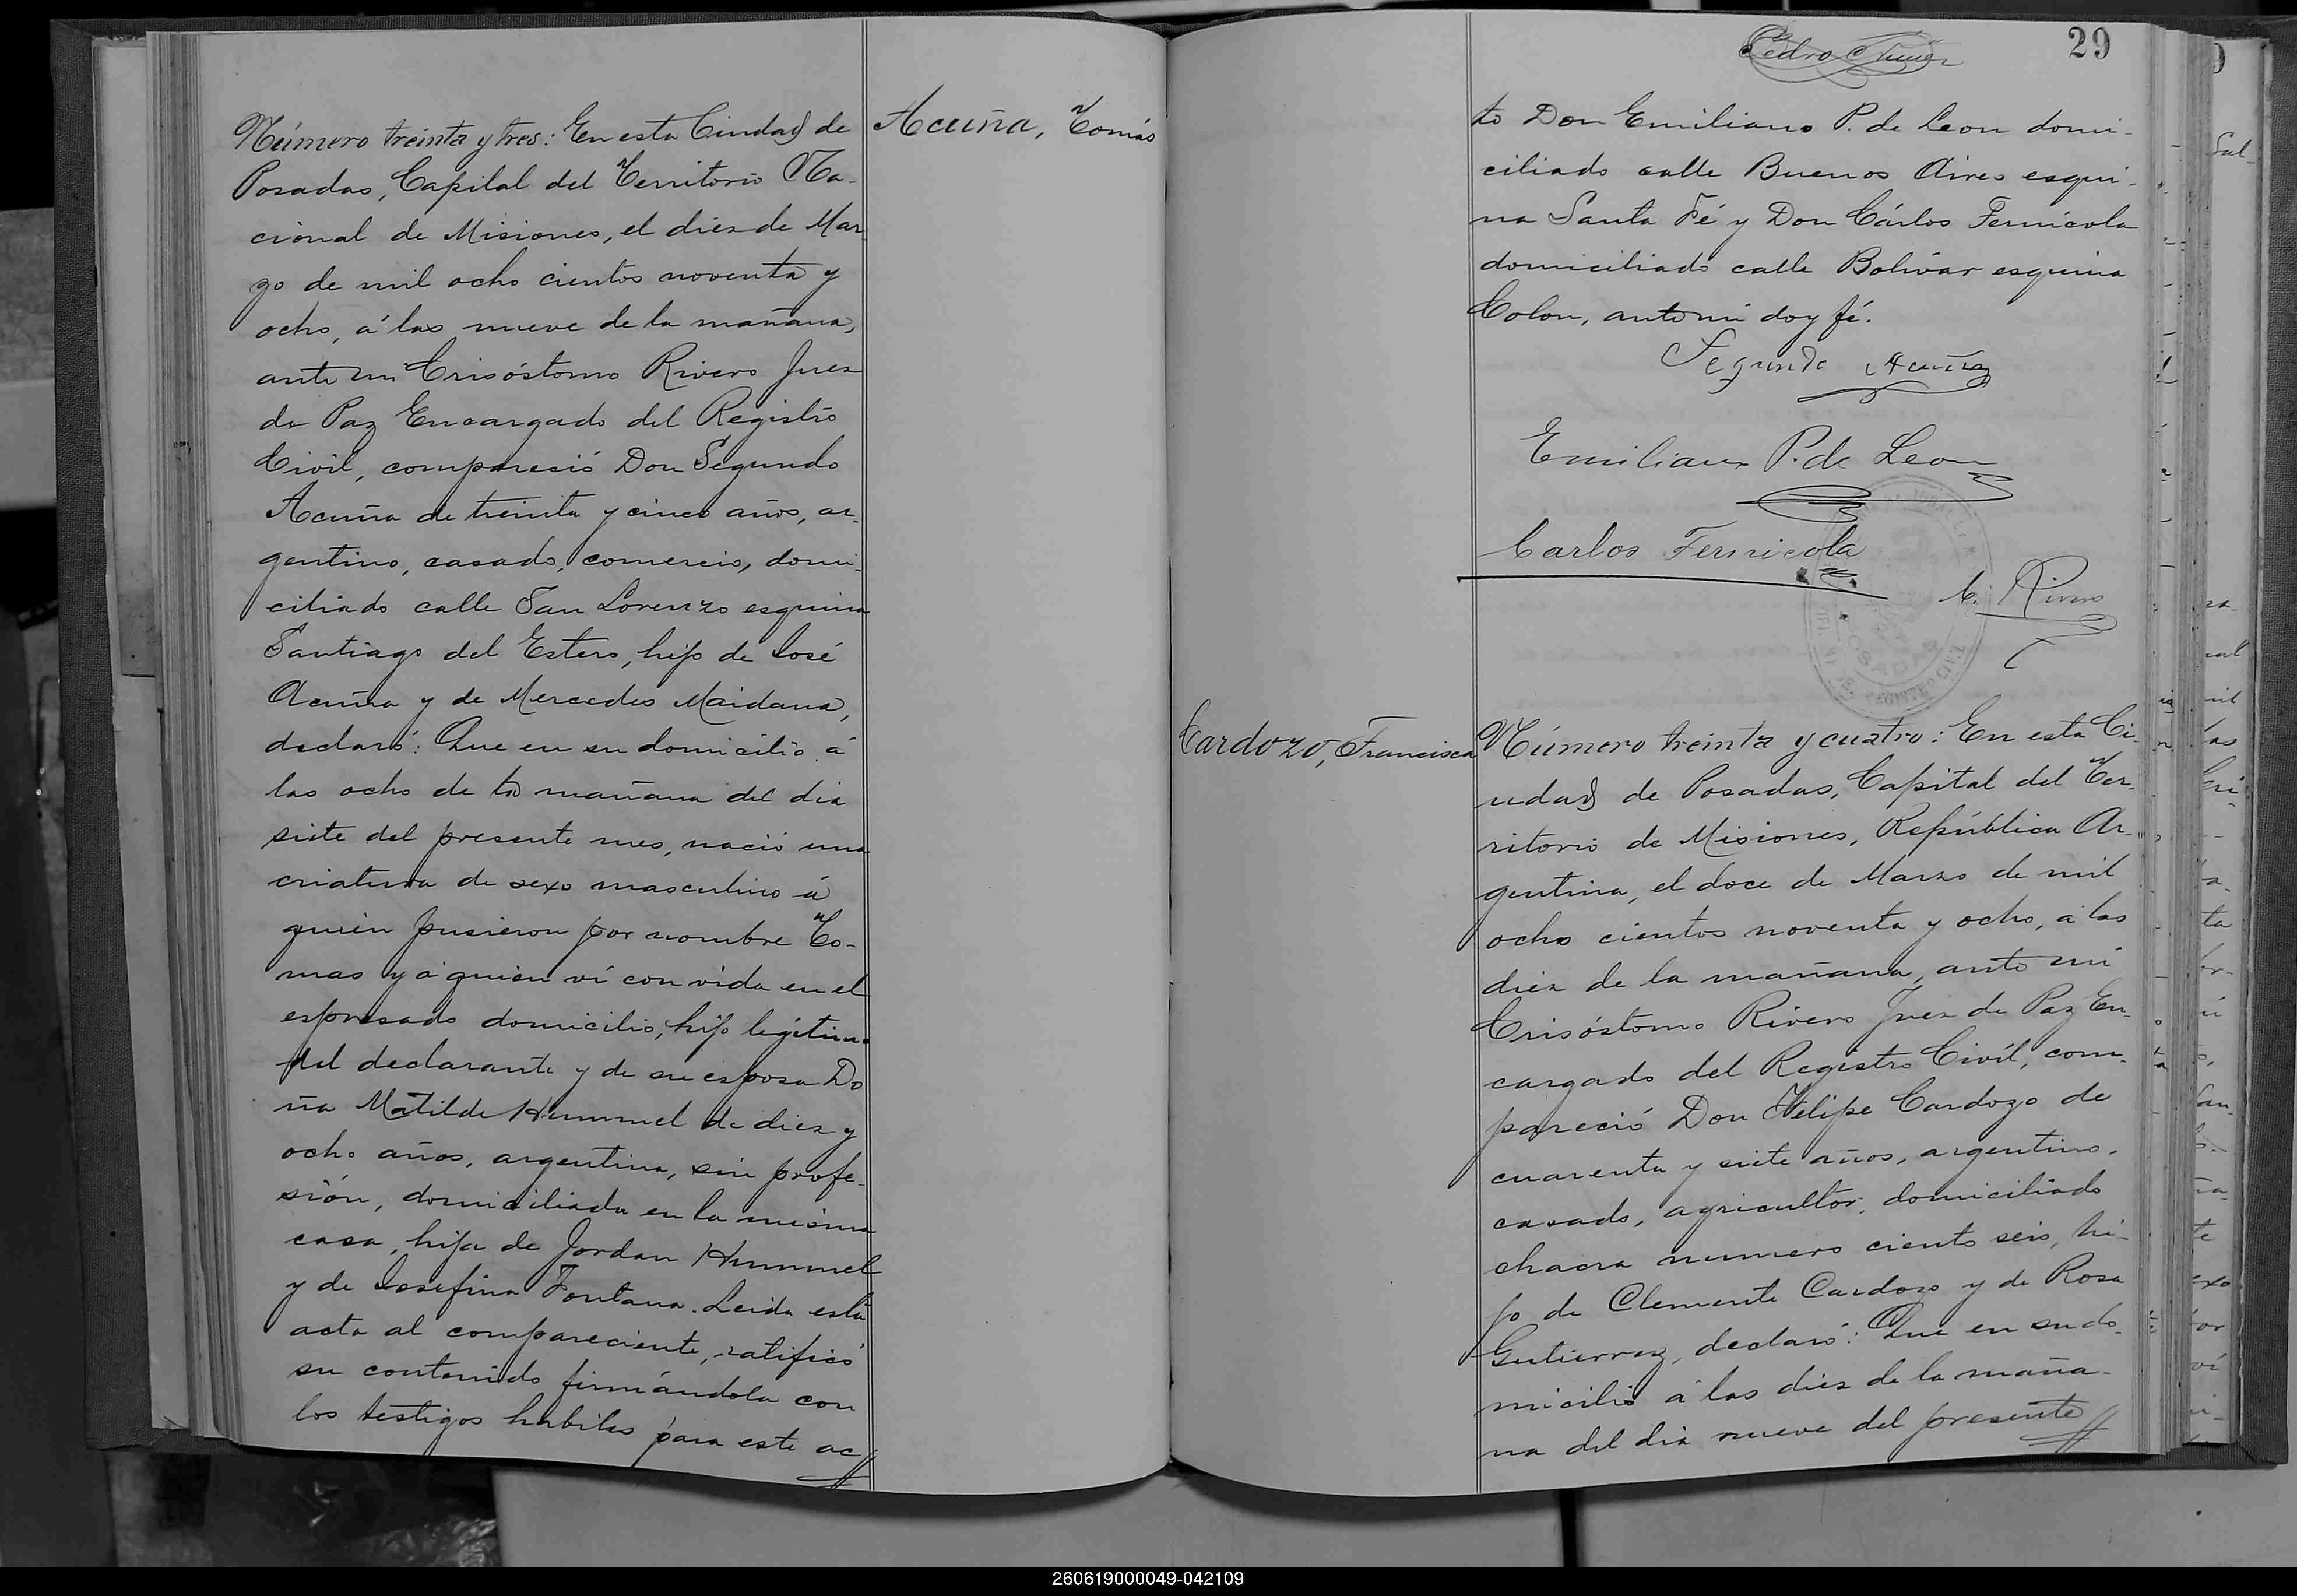 Acuña, Tomás
Número treinta y tres: En esta Ciudad de
Posadas, Capital del Territorio Na-
cional de Misiones, el diez de Mar-
zo de mil ocho cientos noventa y
ocho, á las nueve de la mañana,
ante mi Crisóstomo Rivero Juez
de Paz Encargado del Registro
Civil, compareció Don Segundo
Acuña de treinta y cinco años, ar-
gentino, casado, comercio, domi-
ciliado calle San Lorenzo esquina
Santiago del Estero, hijo de José
Acuña y de Mercedes Maidana,
declaró: Que en su domicilio á
las ocho de la mañana del dia
siete del presente mes, nació una
criatura de sexo masculino á
quien pusieron por nombre To-
mas y á quien ví con vida en el
espresado domicilio, hijo legítimo
del declarante y de su esposa Do
ña Matilde Hummel de diez y
ocho años, argentina, sin profe-
sión, domiciliada en la misma
casa, hija de Jordan Hummel
y de Josefina Fontana. Leida esta
acta al compareciente, ratificó
su contenido firmándola con
los testigos habiles para este ac
Pedro
29
to Don Emiliano P. de Leon domi-
ciliado calle Buenos Aires esqui-
na Santa Fé y Don Cárlos Fernicola
domiciliado calle Bolívar esquina
Colon, ante mi doy fé.
Segundo Acuña
Emiliano P. de Leon
Carlos Fernicola
C. Rivero
POSADAS
REGISTRO CIVIL
Cardozo, Francisca
Número treinta y cuatro: En esta Ci-
udad de Posadas, Capital del Ter-
ritorio de Misiones, República Ar-
gentina, el doce de Marzo de mil
ocho cientos noventa y ocho, á las
diez de la mañana, ante mí
Crisóstomo Rivero Juez de Paz En-
cargado del Registro Civil, com-
pareció Don Felipe Cardozo de
cuarenta y siete años, argentino,
casado, agricultor, domiciliado
chacra numero ciento seis, hi-
jo de Clemente Cardozo y de Rosa
Gutierrez, declaró: Que en su do-
micilio á las diez de la maña-
na del dia nueve del presente
260619000049-042109